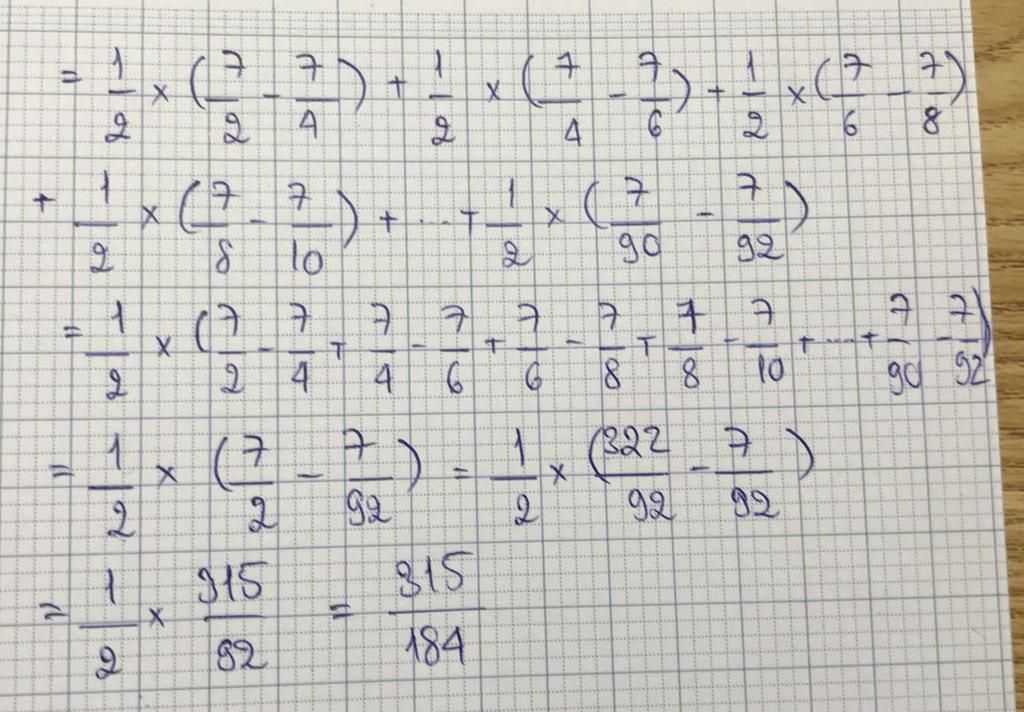 = 1/2 × (7/2 - 7/4) + 1/2 × (7/4 - 7/6) + 1/2 × (7/6 - 7/8)
+ 1/2 × (7/8 - 7/10) + ... + 1/2 × (7/90 - 7/92)
= 1/2 × (7/2 - 7/4 + 7/4 - 7/6 + 7/6 - 7/8 + 7/8 - 7/10 + ... + 7/90 - 7/92)
= 1/2 × (7/2 - 7/92) = 1/2 × (322/92 - 7/92)
= 1/2 × 315/92 = 315/184